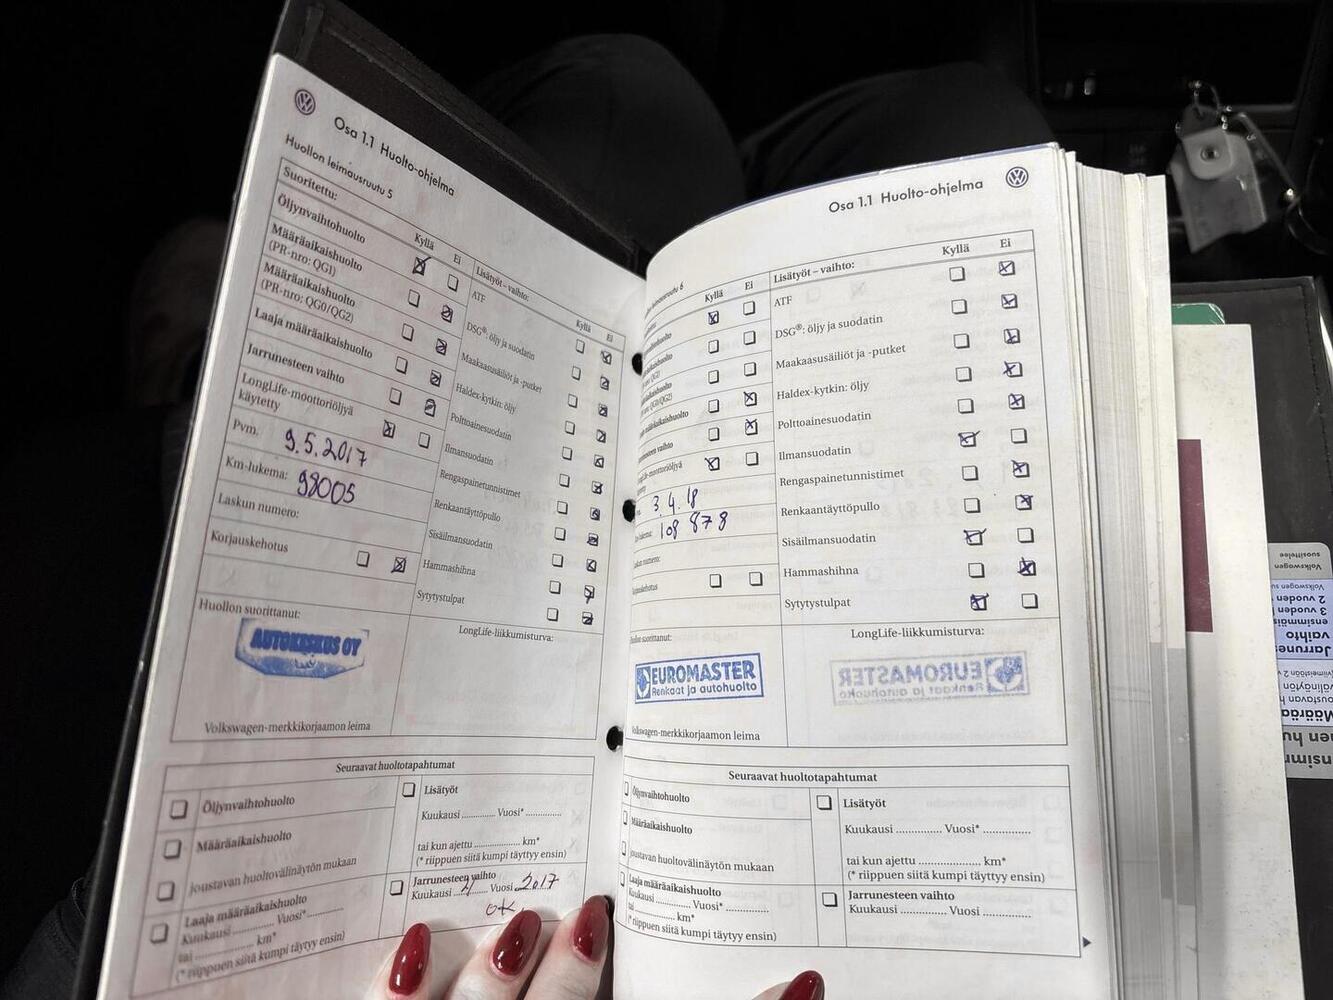 Osa 1.1 Huolto-ohjelma
Huollon leimausruutu 5
Suoritettu:
Kyllä Ei
Öljynvaihtohuolto
Määräaikaishuolto
(PR-nro: QG1)
Määräaikaishuolto
(PR-nro: QG0/QG2)
Laaja määräaikaishuolto
Jarrunesteen vaihto
LongLife-moottoriöljyä
käytetty
Pvm. 9.5.2017
Km-lukema: 98005
Laskun numero:
Korjauskehotus
Lisätyöt – vaihto:
Kyllä Ei
ATF
DSG®: öljy ja suodatin
Maakaasusäiliöt ja -putket
Haldex-kytkin: öljy
Polttoainesuodatin
Ilmansuodatin
Rengaspainetunnistimet
Renkaantäyttöpullo
Sisäilmansuodatin
Hammashihna
Sytytystulpat
Huollon suorittanut:
AUTOKESKUS OY
Volkswagen-merkkikorjaamon leima
LongLife-liikkumisturva:
Seuraavat huoltotapahtumat
Öljynvaihtohuolto
Määräaikaishuolto
joustavan huoltovälinäytön mukaan
Laaja määräaikaishuolto
Kuukausi ............ Vuosi* ............
tai ................ km*
(* riippuen siitä kumpi täytyy ensin)
Lisätyöt
Kuukausi ............ Vuosi* ............
tai kun ajettu ................ km*
(* riippuen siitä kumpi täytyy ensin)
Jarrunesteen vaihto
Kuukausi Vuosi 2017
OK
Osa 1.1 Huolto-ohjelma
6
Kyllä Ei
3.4.18
108 878
Lisätyöt – vaihto:
Kyllä Ei
ATF
DSG®: öljy ja suodatin
Maakaasusäiliöt ja -putket
Haldex-kytkin: öljy
Polttoainesuodatin
Ilmansuodatin
Rengaspainetunnistimet
Renkaantäyttöpullo
Sisäilmansuodatin
Hammashihna
Sytytystulpat
EUROMASTER
Renkaat ja autohuolto
Volkswagen-merkkikorjaamon leima
LongLife-liikkumisturva:
EUROMASTER
Renkaat ja autohuolto
Seuraavat huoltotapahtumat
Öljynvaihtohuolto
Määräaikaishuolto
joustavan huoltovälinäytön mukaan
Laaja määräaikaishuolto
Kuukausi ............ Vuosi* ............
tai ................ km*
(* riippuen siitä kumpi täytyy ensin)
Lisätyöt
Kuukausi ............ Vuosi* ............
tai kun ajettu ................ km*
(* riippuen siitä kumpi täytyy ensin)
Jarrunesteen vaihto
Kuukausi ............ Vuosi ............
Volkswagen
suosittelee
2 vuoden
3 vuoden
vaihto